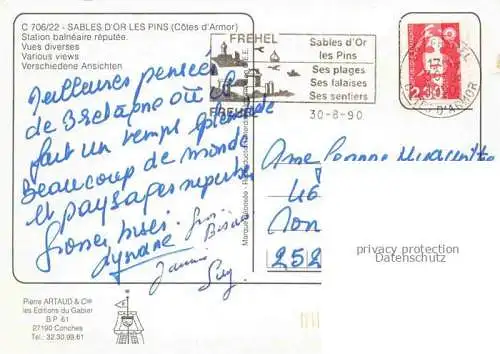 C 706/22 - SABLES D'OR LES PINS (Côtes d'Armor)
Station balnéaire réputée.
Vues diverses
Various views
Verschiedene Ansichten
FREHEL
FREHEL
Sables d'Or
les Pins
Ses plages
Ses falaises
Ses sentiers
30-8-90
2.30
D'ARMOR
Meilleures pensées
de Bretagne où il
fait un temps splendide
beaucoup de monde
et paysages superbes
Grosses bises
252
privacy protection
Datenschutz
Pierre ARTAUD & Cie
les Editions du Gabier
B.P. 61
27190 Conches
Tél.: 32.30.99.61